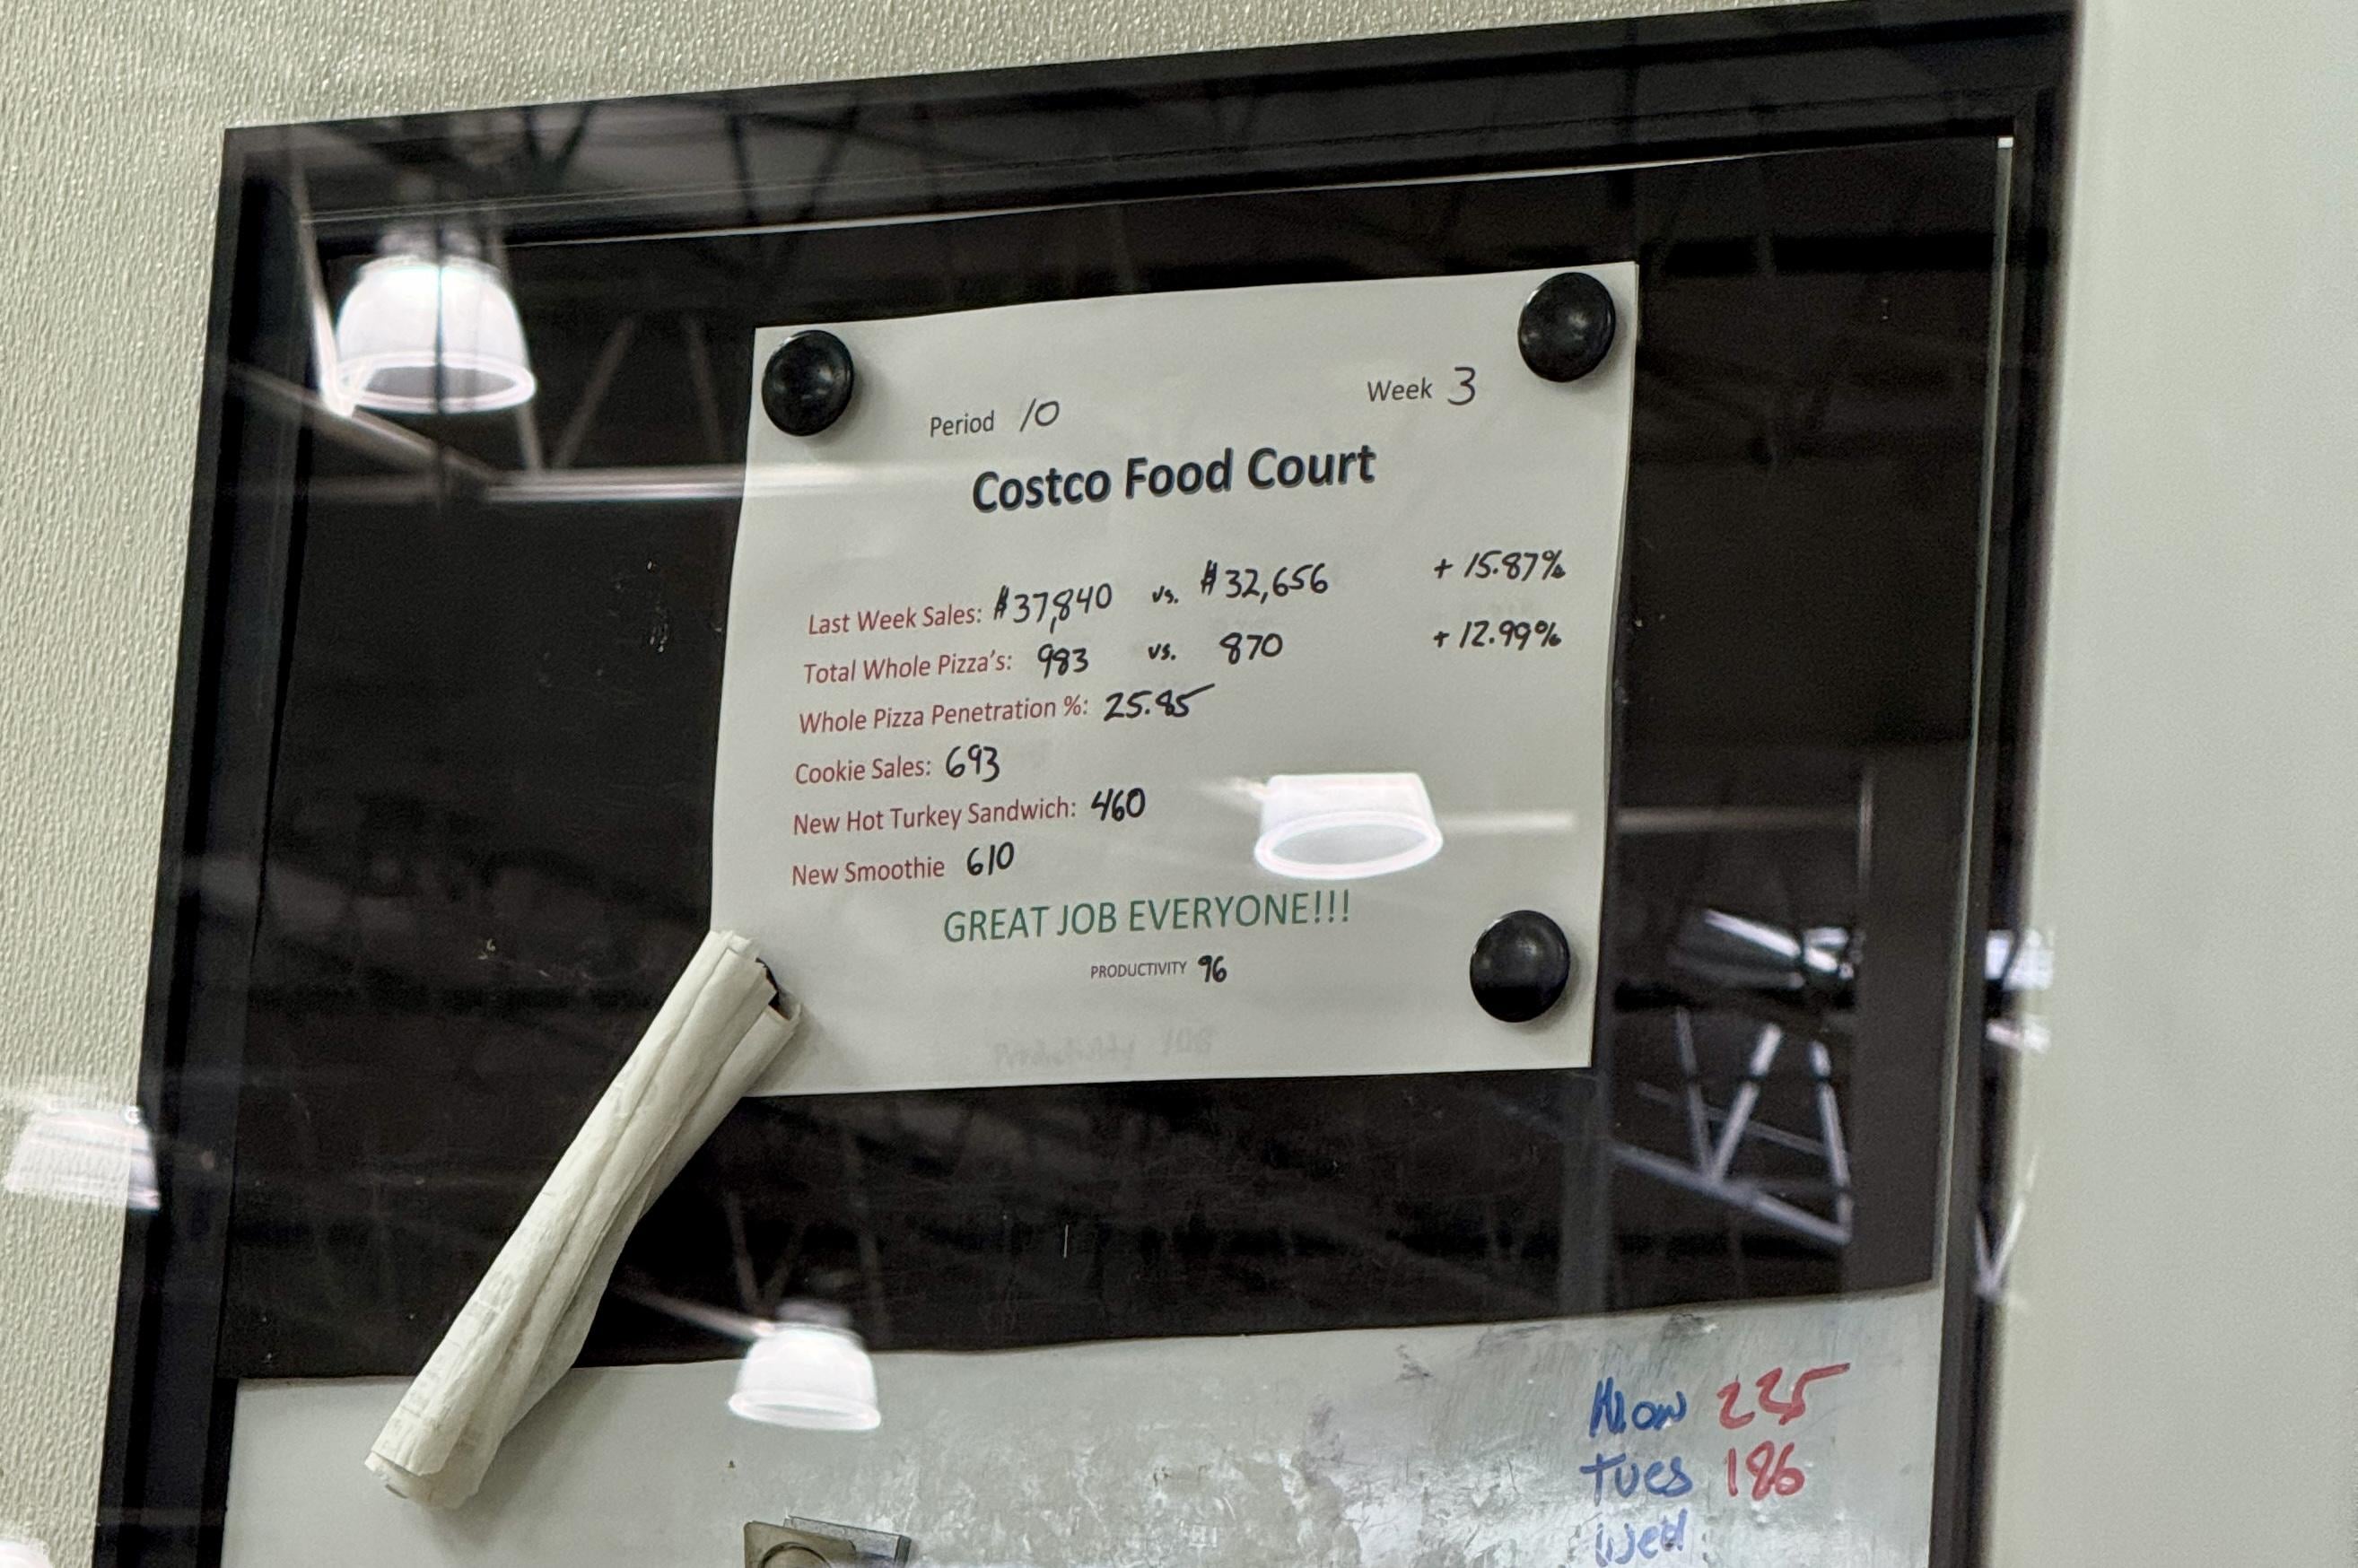 Period 10 Week 3
Costco Food Court
Last Week Sales: $37,840 vs. $32,656 + 15.87%
Total Whole Pizza's: 983 vs. 870 + 12.99%
Whole Pizza Penetration %: 25.95
Cookie Sales: 693
New Hot Turkey Sandwich: 460
New Smoothie 610
GREAT JOB EVERYONE!!!
PRODUCTIVITY 96
Productivity 108
Mon 225
Tues 186
Wed